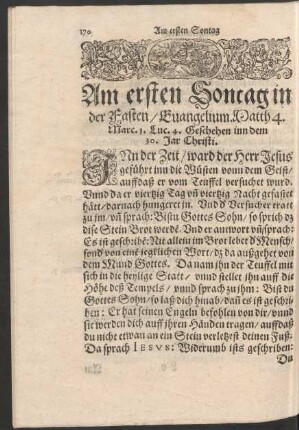 170
Am ersten Sontag
Am ersten Sontag in
der Fasten / Euangelium. Matth 4.
Marc. 1. Luc. 4. Geschehen inn dem
30. Jar Christi.
INn der Zeit / ward der Herr Jesus
geführt inn die Wüsten vonn dem Geist /
auff daß er vom Teuffel versucht wurd.
Vnnd da er viertzig Tag vñ viertzig Nacht gefastet
hätt / darnach hungeret in. Vnd d' Versucher tratt
zu im / vñ sprach: Bistu Gottes Sohn / so sprich dz
dise Stein Brot werdē. Vnd er antwort vñ sprach:
Es ist geschribē: Nit allein im Brot lebet d' Mensch /
sond' von eine jeglichen Wort / dz da außgehet von
dem Mund Gottes. Da nam ihn der Teuffel mit
sich in die heylige Statt / vnnd stellet ihn auff die
Höhe deß Tempels / vnnd sprach zu jhn: Bist du
Gottes Sohn / so laß dich hinab / dañ es ist geschri-
ben: Er hat seinen Engeln befohlen von dir / vnnd
sie werden dich auff ihren Händen tragen / auff daß
du nicht etwan an ein Stein verletzest deinen Fuß.
Da sprach IESVS: Widerumb ists geschriben:
Du